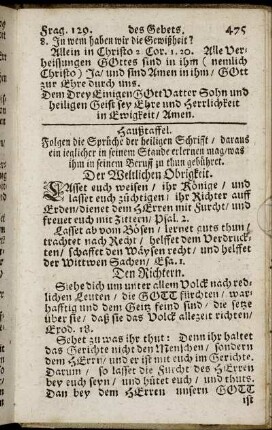 Frag. 129. des Gebets. 475
8. In wem haben wir die Gewißheit?
Allein in Christo 2 Cor. 1. 20. Alle Ver-
heissungen GOttes sind in ihm (nemlich
Christo) Ja/ und sind Amen in ihm/ GOtt
zur Ehre durch uns.
Dem Drey Einigen GOtt Vatter Sohn und
heiligen Geist sey Ehre und Herrlichkeit
in Ewigkeit/ Amen.
Haußtaffel.
Folgen die Sprüche der heiligen Schrifft/ daraus
ein ieglicher in seinem Stande erlernen mag/was
ihm in seinem Beruff zu thun gebühret.
Der Weltlichen Obrigkeit.
LAsset euch weisen/ ihr Könige/ und
lasset euch züchtigen/ ihr Richter auff
Erden/dienet dem HErren mit Furcht/ und
freuet euch mit Zittern/ Psal. 2.
Lasset ab vom Bösen/ lernet guts thun/
trachtet nach Recht/ helffet dem Verdruck-
ten/ schaffet den Wäysen recht/ und helffet
der Wittwen Sachen/ Esa. 1.
Den Richtern.
Siehe dich um unter allem Volck nach red-
lichen Leuten/ die GOTT fürchten/ war-
hafftig und dem Geitz feind sind/ die setze
über sie/ daß sie das Volck allezeit richten/
Exod. 18.
Sehet zu was ihr thut: Denn ihr haltet
das Gerichte nicht den Menschen/ sondern
dem HErrn/ und er ist mit euch im Gerichte.
Darum/ so lasset die Furcht des HErren
bey euch seyn/ und hütet euch/ und thuts.
Dan bey dem HErren unsern GOTT
ist